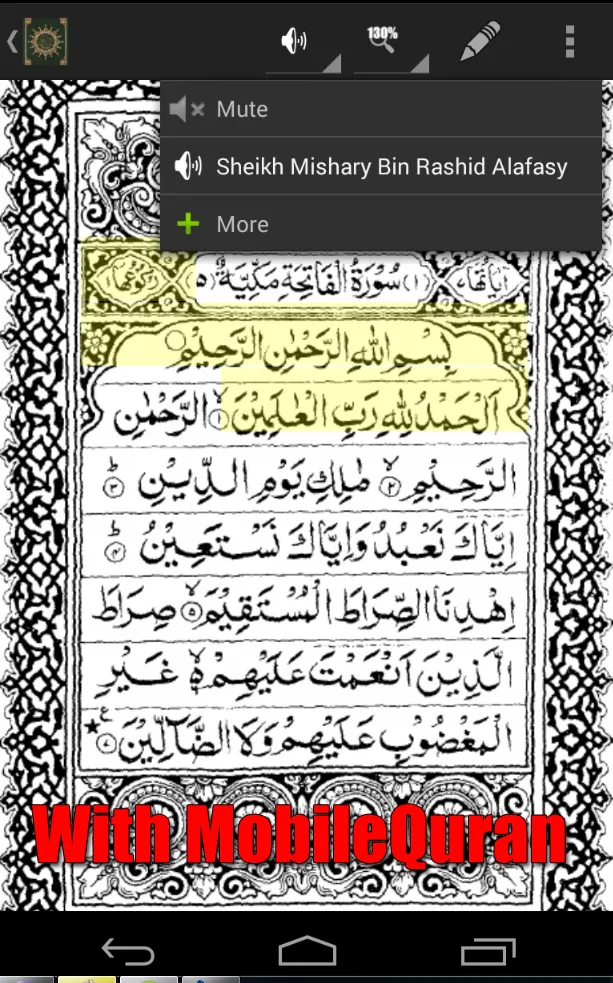 130%
Mute
Sheikh Mishary Bin Rashid Alafasy
More
اٰيَاتُهَا ٧ (١) سُوْرَةُ الْفَاتِحَةِ مَكِّيَّةٌ (٥) رُكُوْعُهَا ١
بِسْمِ اللّٰهِ الرَّحْمٰنِ الرَّحِيْمِ
اَلْحَمْدُ لِلّٰهِ رَبِّ الْعٰلَمِيْنَ ۙ﴿١﴾ الرَّحْمٰنِ
الرَّحِيْمِ ۙ﴿٢﴾ مٰلِكِ يَوْمِ الدِّيْنِ ؕ﴿٣﴾
اِيَّاكَ نَعْبُدُ وَاِيَّاكَ نَسْتَعِيْنُ ؕ﴿٤﴾
اِهْدِنَا الصِّرَاطَ الْمُسْتَقِيْمَ ۙ﴿٥﴾ صِرَاطَ
الَّذِيْنَ اَنْعَمْتَ عَلَيْهِمْ ۙ۬ غَيْرِ
الْمَغْضُوْبِ عَلَيْهِمْ وَلَا الضَّآلِّيْنَ ﴿٧﴾ ع ★
With MobileQuran